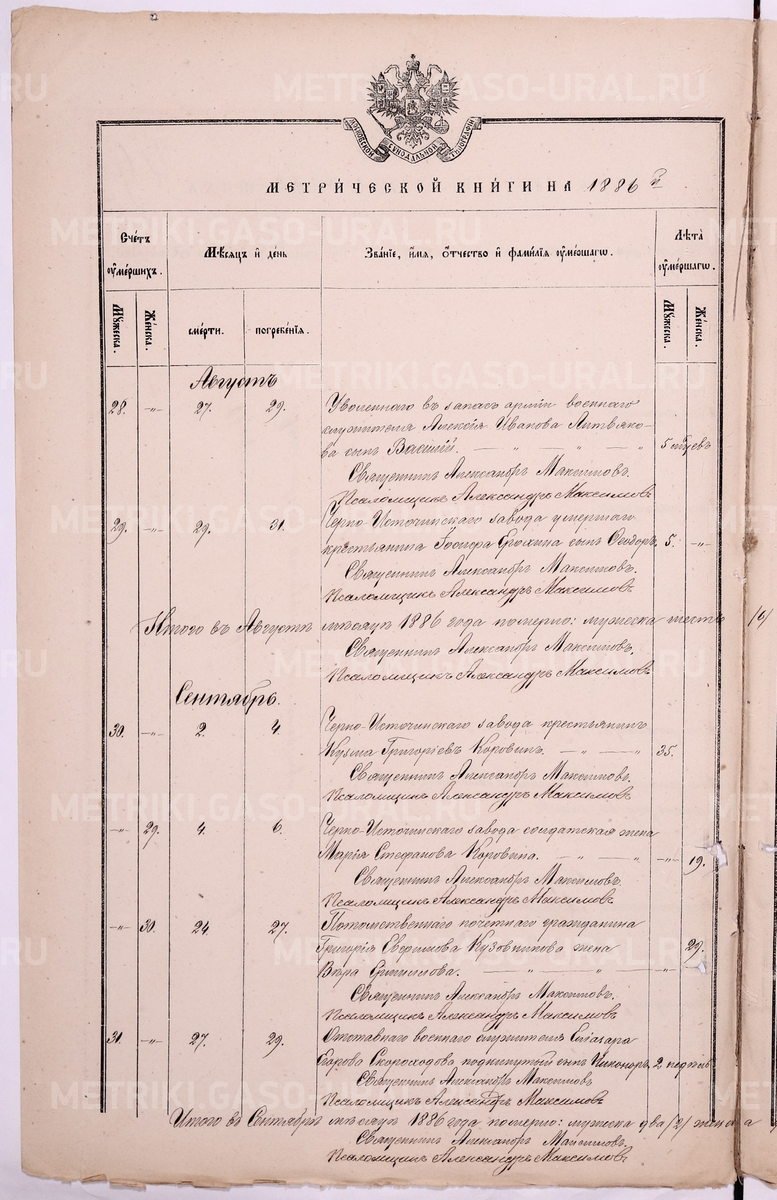 METRIKI.GASO-URAL.RU
МОСКОВСКОЙ СѴНОДАЛЬНОЙ ТИПОГРАФІИ
МЕТРИ́ЧЕСКОЙ КНИ́ГИ НА 1886 й
Счетъ оумершихъ. Мѣсяцъ и день Званіе, имя, отчество и фамилія оумершагѡ. Лѣта оумершагѡ.
Мужеска. Женска. смерти. погребенія. Мужеска. Женска.
Августъ
28. -„- 27. 29. Уволеннаго въ запасъ арміи военнаго
служителя Алексія Иванова Литвяко-
ва сынъ Василій. — „ — „ 5 мѣсяцевъ
Священникъ Александръ Максимовъ.
Псаломщикъ Александръ Максимовъ
29. -„- 29. 31. Черно-Источинскаго завода умершаго
крестьянина Іосифа Ерохина сынъ Ѳеодоръ, 5. -„-
Священникъ Александръ Максимовъ.
Псаломщикъ Александръ Максимовъ
Итого въ Августѣ мѣсяцѣ 1886 года померло: мужеска шесть /6/
Священникъ Александръ Максимовъ.
Псаломщикъ Александръ Максимовъ
Сентябрь.
30. -„- 2. 4. Черно-Источинскаго завода крестьянинъ
Кузма Григоріевъ Коровинъ. — „ — „ 35.
Священникъ Александръ Максимовъ.
Псаломщикъ Александръ Максимовъ
-„- 29. 4. 6. Черно-Источинскаго завода солдатская жена
Марія Стефанова Коровина. — „ — „ -„- 19.
Священникъ Александръ Максимовъ.
Псаломщикъ Александръ Максимовъ
-„- 30. 24. 27. Потомственнаго почетнаго гражданина
Григорія Евфимова Кузовникова жена 29.
Вѣра — „ — „
Священникъ Александръ Максимовъ.
Псаломщикъ Александръ Максимовъ
31. -„- 27. 29. Отставнаго военнаго служителя Еліазара
Егорова Скороходова подкинутый сынъ Никоноръ, 2 недѣль
Священникъ Александръ Максимовъ
Псаломщикъ Александръ Максимовъ
Итого въ Сентябрѣ мѣсяцѣ 1886 года померло: мужеска два /2/ женска
Священникъ Александръ Максимовъ.
Псаломщикъ Александръ Максимовъ.